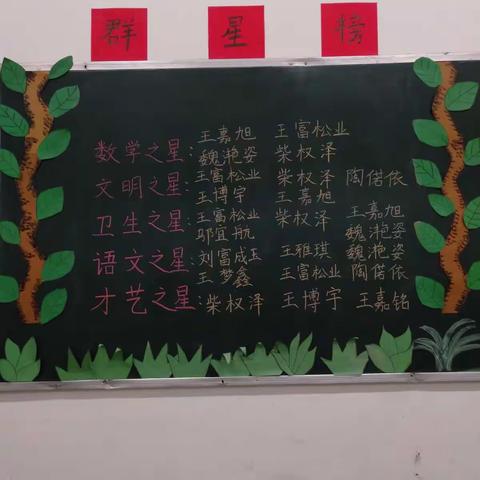 群星榜
王嘉旭 王富松业
数学之星:魏滟姿 柴权泽
王富松业 柴权泽 陶偌依
文明之星:王博宇 王嘉旭
王富松业 柴权泽 王嘉旭
卫生之星:邬宜航 魏滟姿
语文之星:刘富成玉 王雅琪 魏滟姿
王梦鑫 王富松业 陶偌依
才艺之星:柴权泽 王博宇 王嘉铭